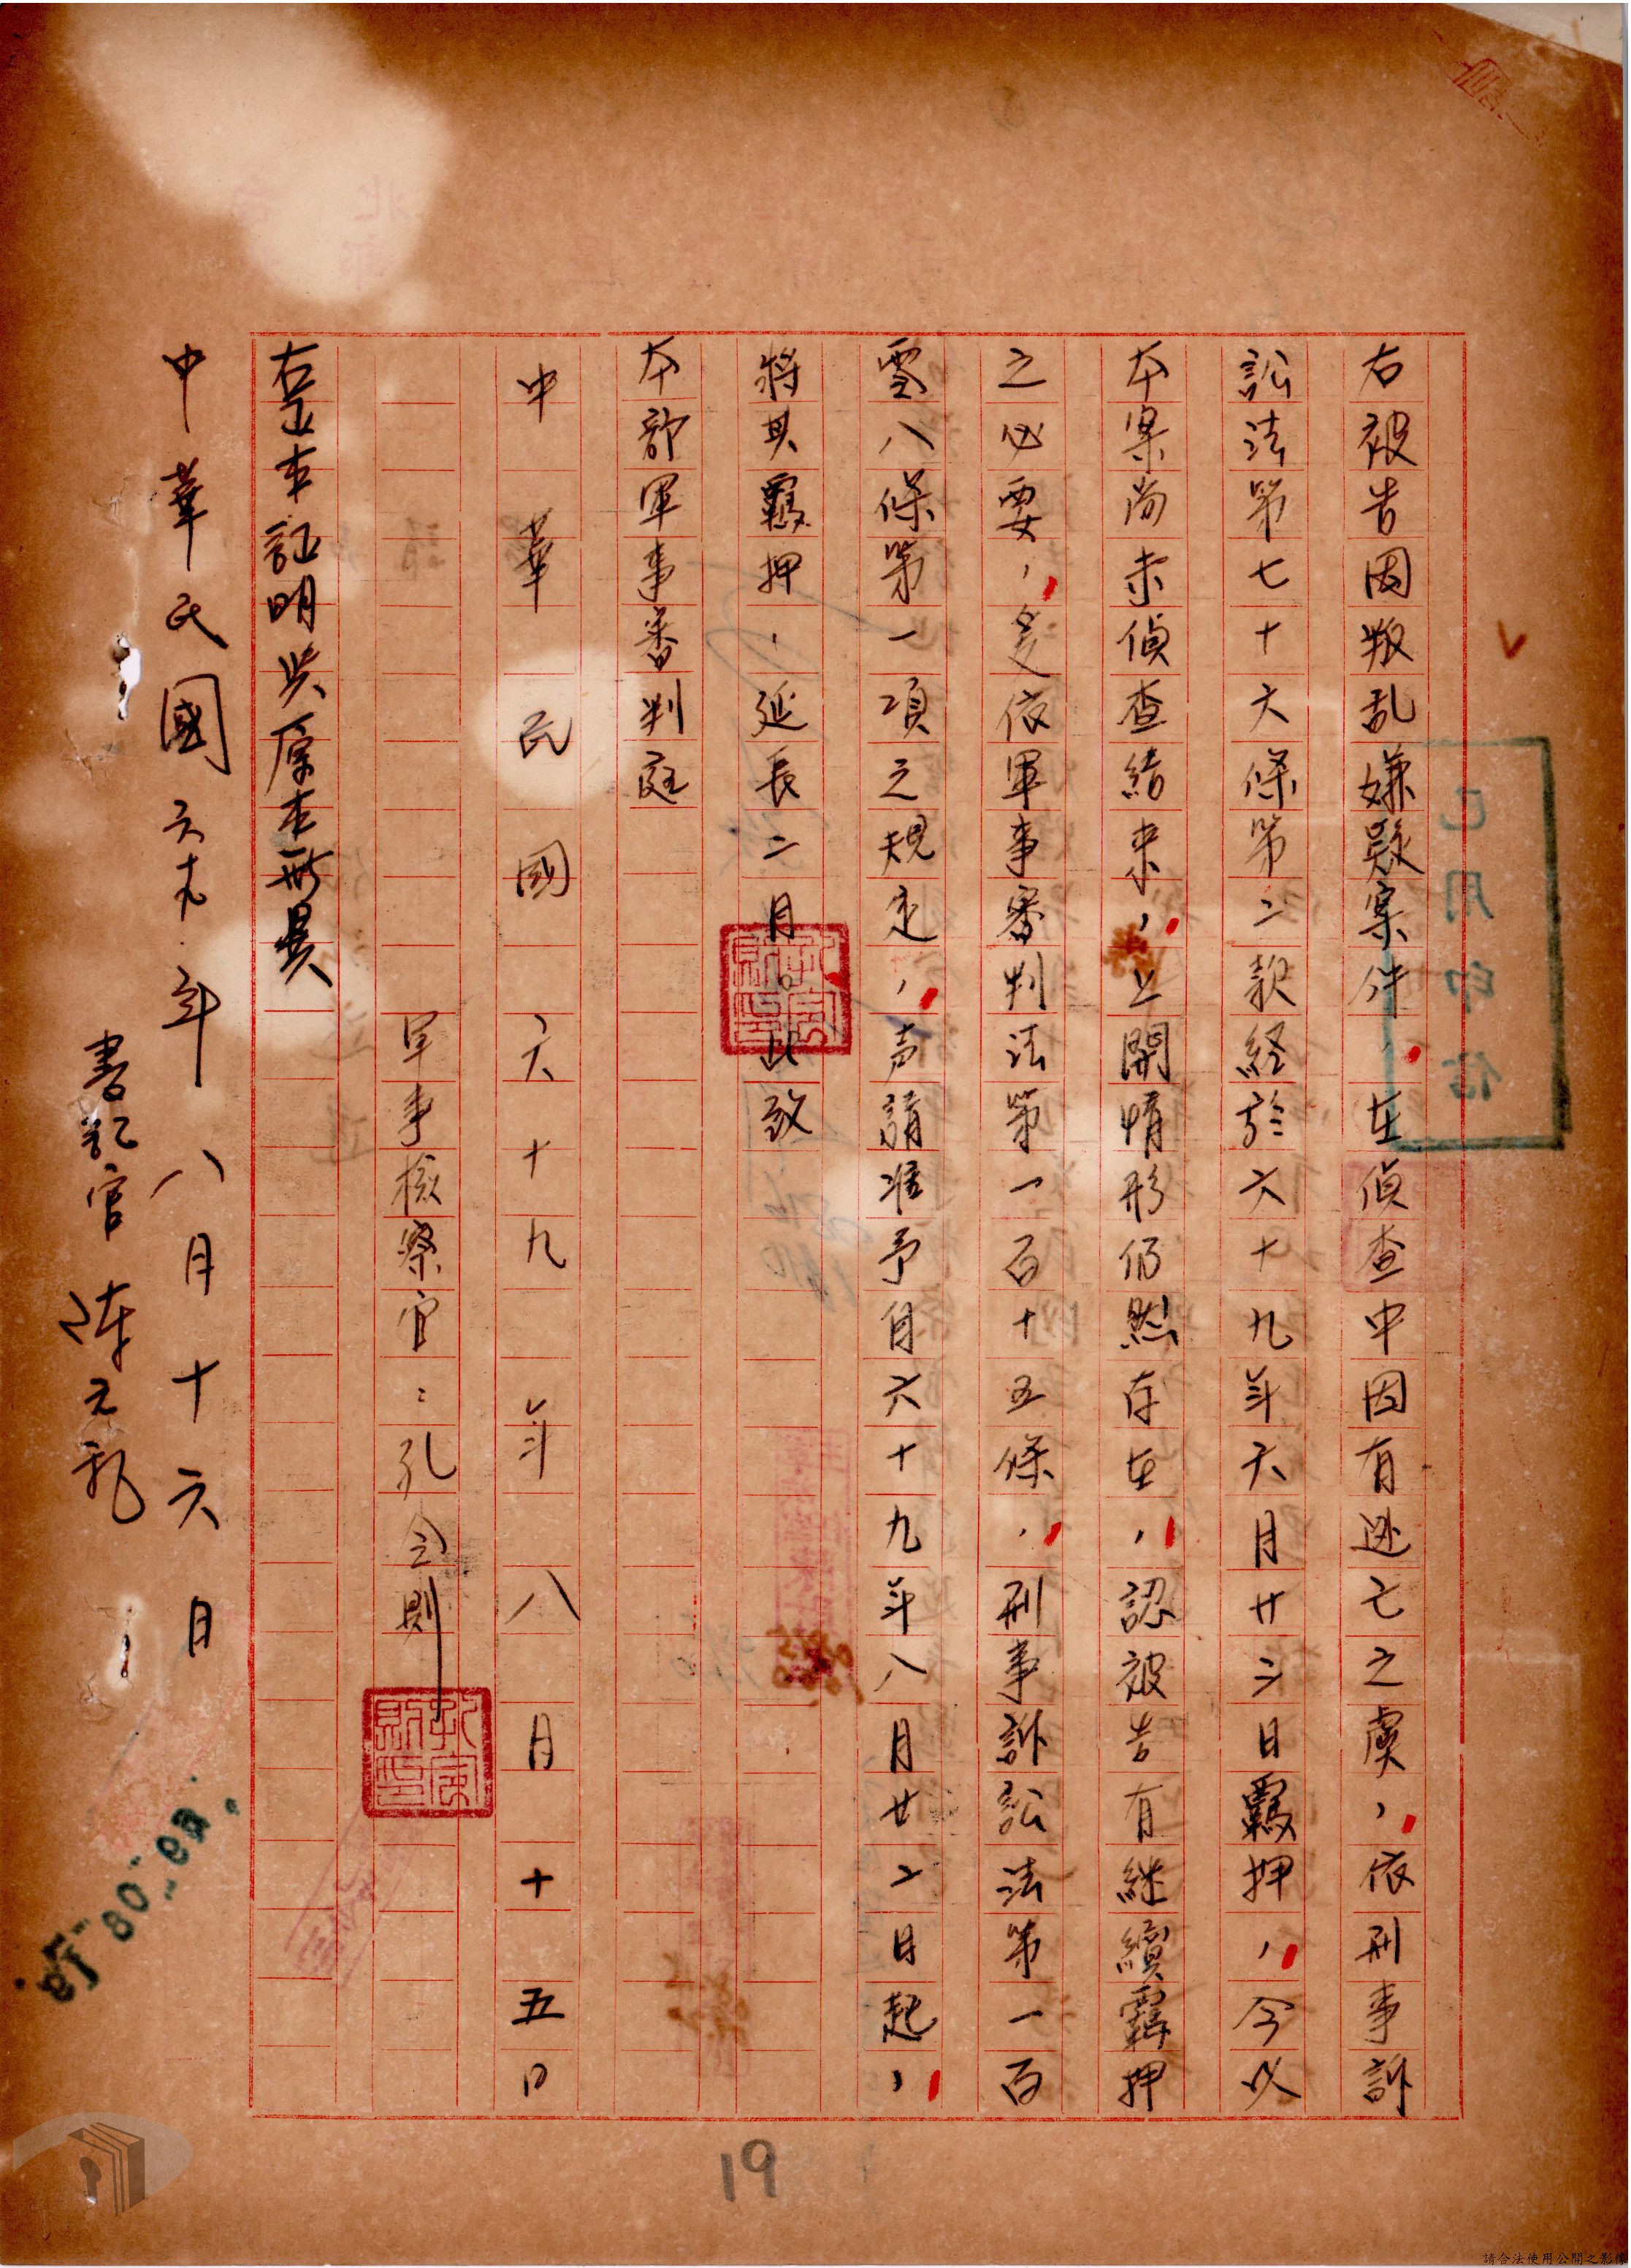 右被告因叛乱嫌疑案件，在偵查中因有逃亡之虞，依刑事訴
訟法第七十六條第二款経於六十九年六月廿二日羈押，今以
本案尚未偵查結束，上開情形仍然存在，認被告有継續羈押
之必要，爰依軍事審判法第一百十五條，刑事訴訟法第一百
零八條第一項之規定，声請准予自六十九年八月廿二日起，
將其羈押，延長二月。此致
本部軍事審判庭
中華民國六十九年八月十五日
軍事檢察官：孔令則
右正本証明與原本無異
中華民國六十九年八月十六日
書記官 陳元
已用印信
19
請合法使用公開之影像